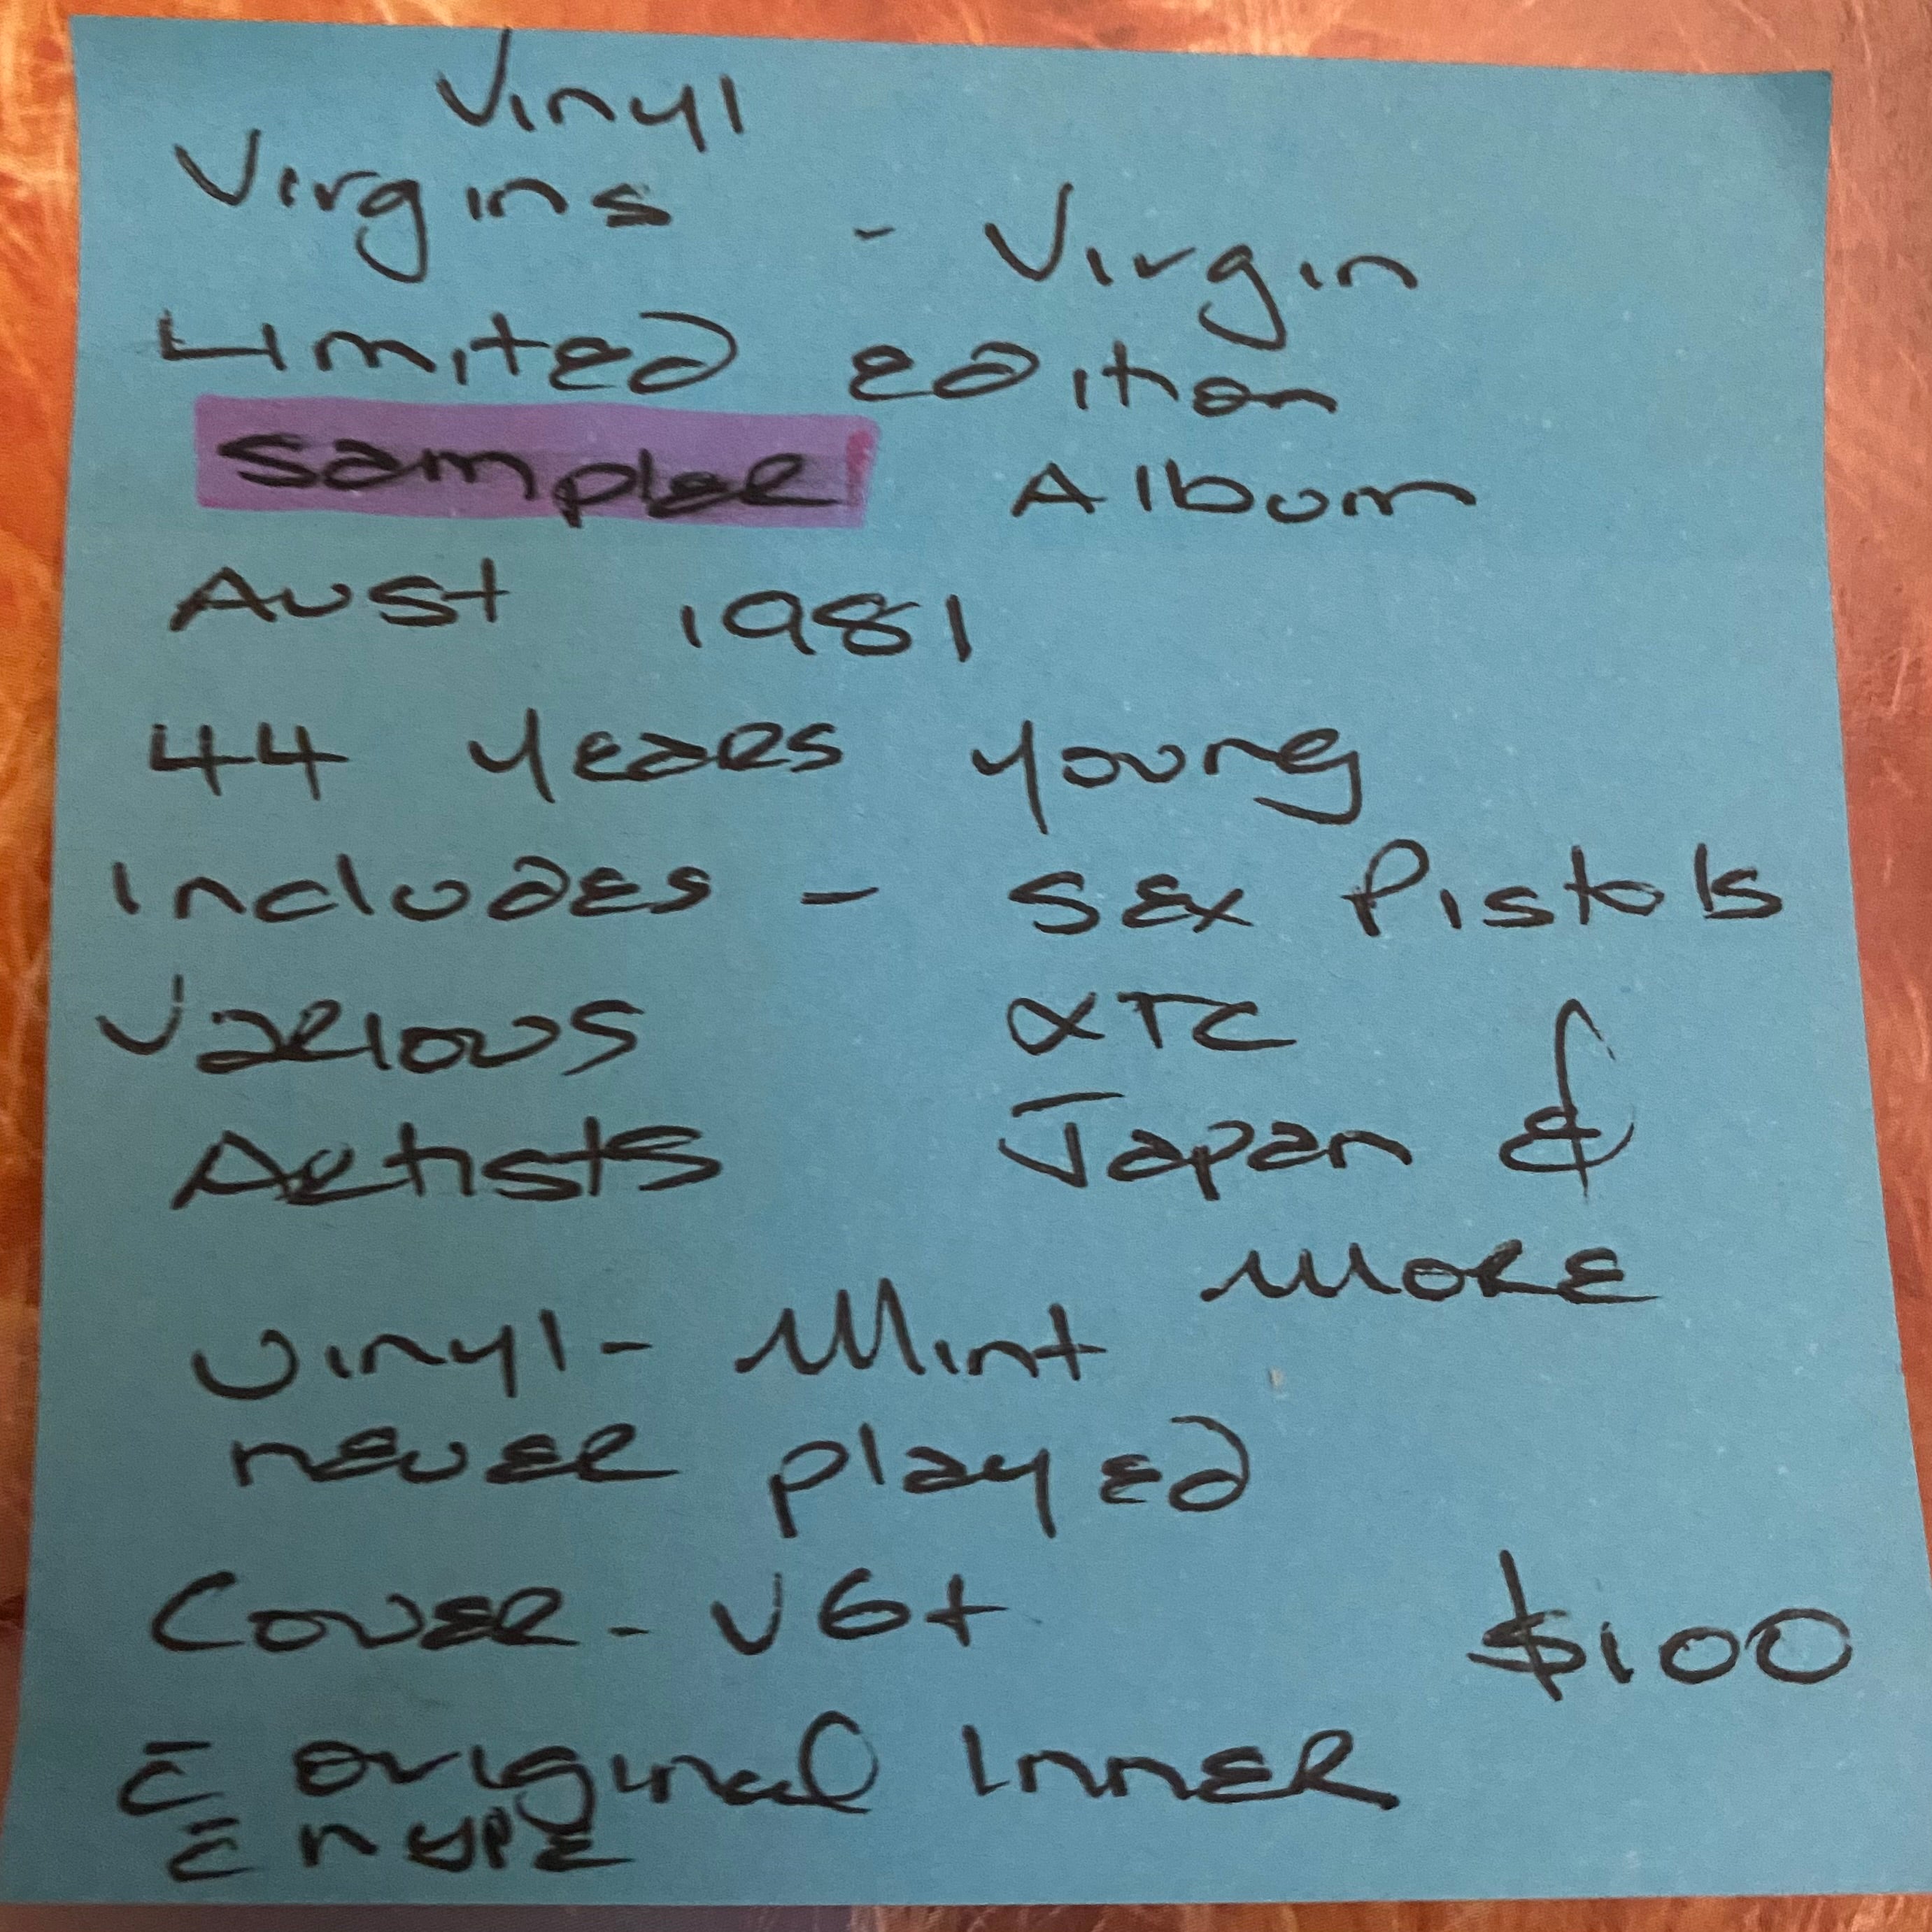 Vinyl
Virgins - Virgin
Limited edition
Sampler Album
Aust 1981
44 years young
Includes - Sex Pistols
Various XTC
Artists Japan &
More
Vinyl - Mint
never played
Cover - VG+ $100
c̄ original Inner
c̄